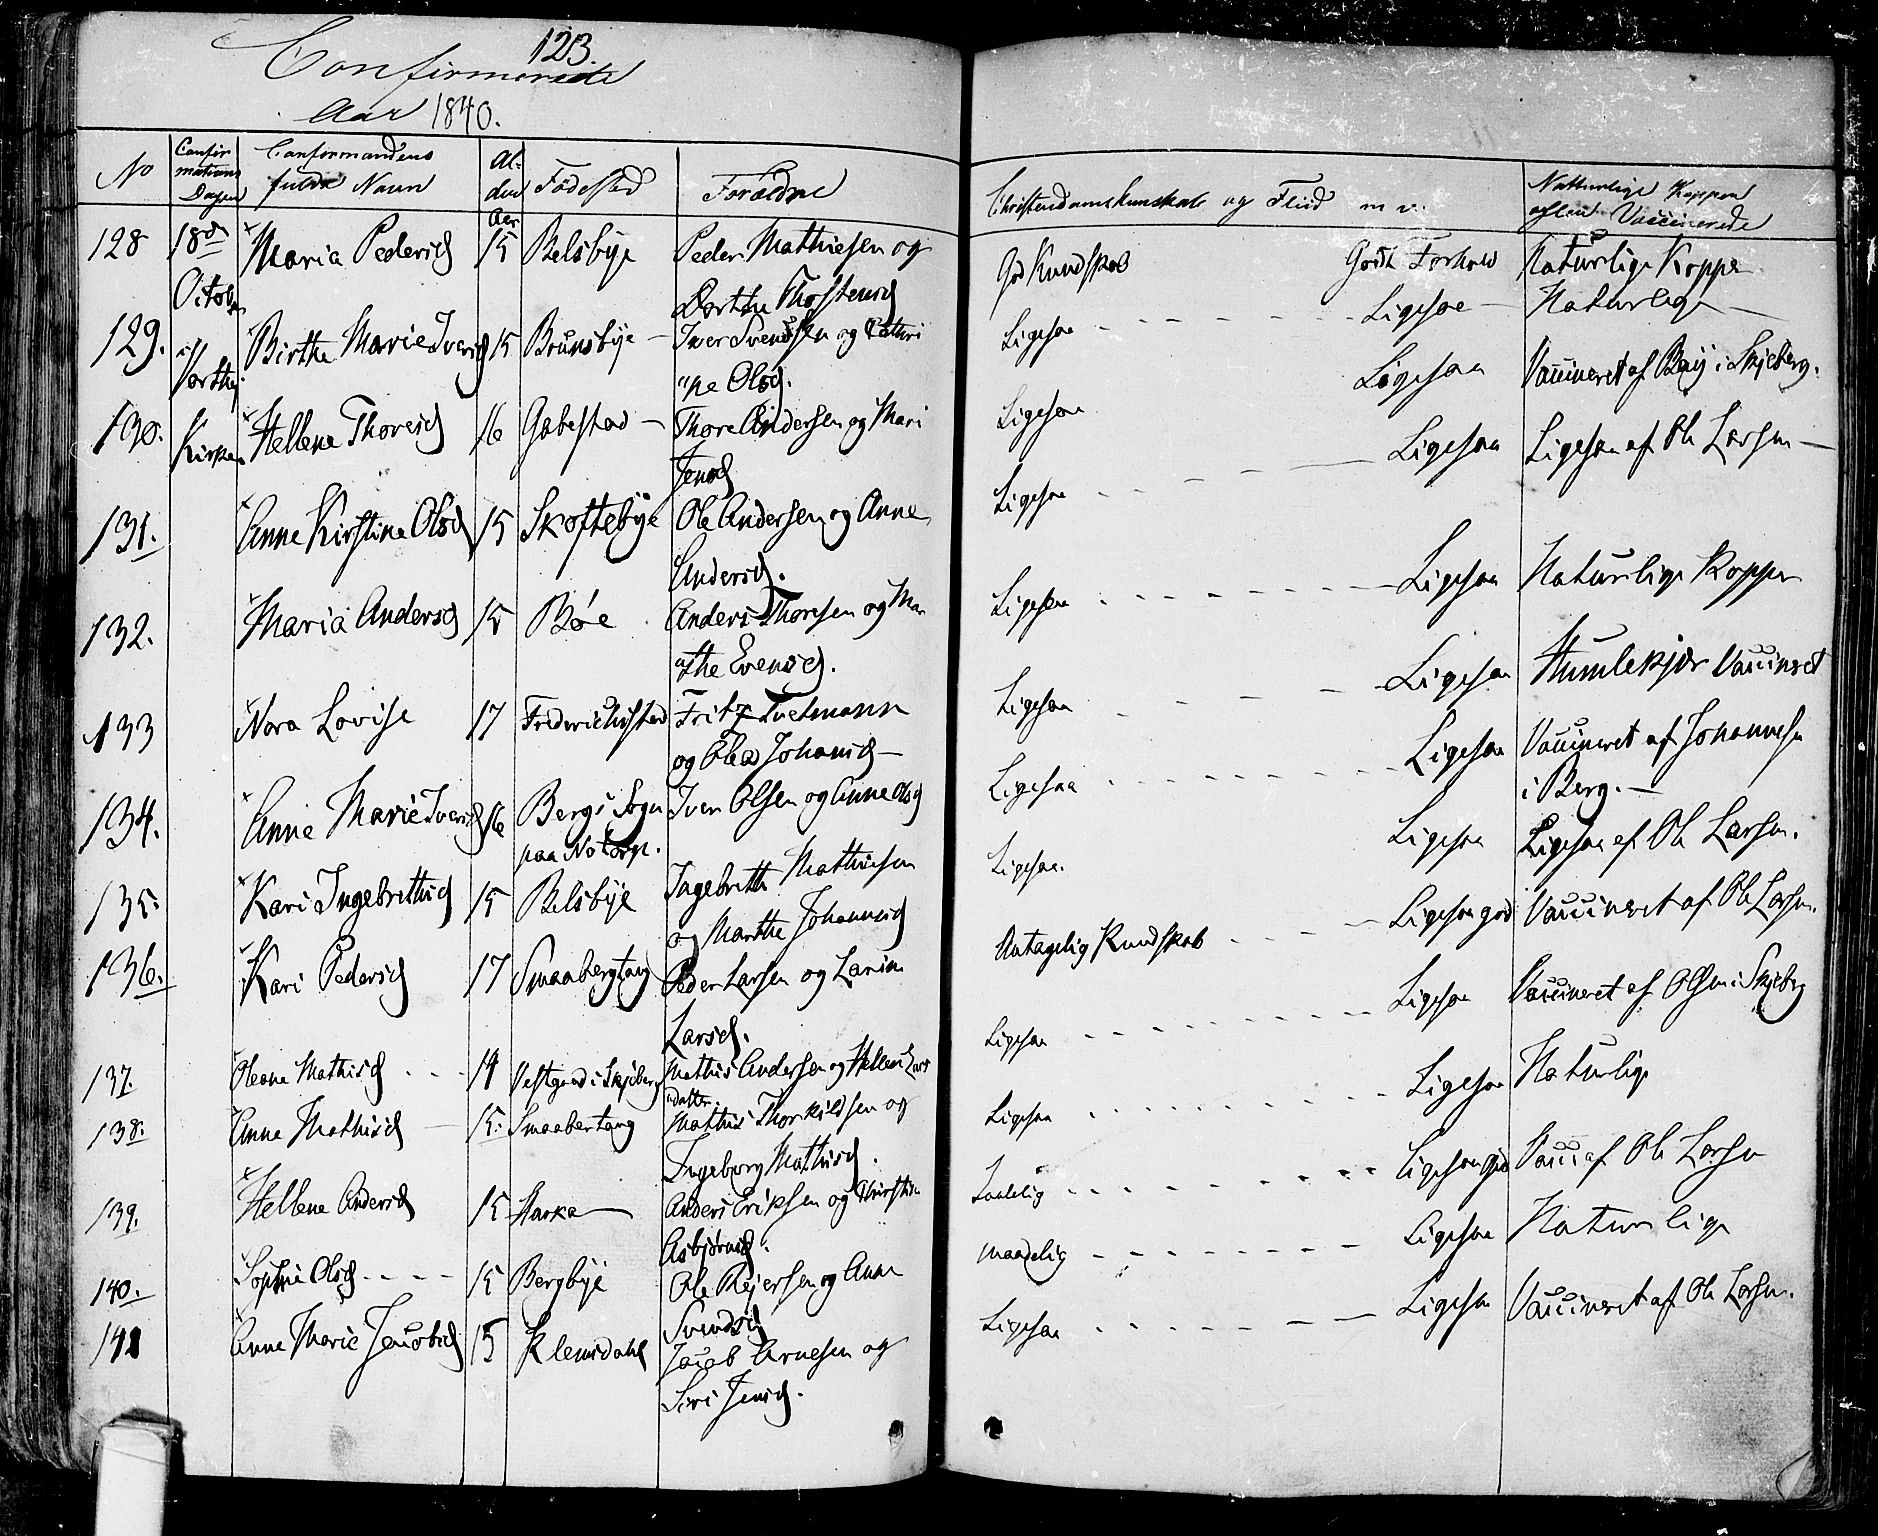 123.
Confirmerede
Aar 1840.
No Confir mations Dagen Confirmandens fulde Navn Al- der Aar Födested Forældre Christendomskundskab og Fliid m v. Naturlige Kopper eller Vaccinerede
128 18de Maria Pedersd 15 Belsbye Peder Mathiesen og God Kundskab Godt Forhold Naturlige Kopper
Octob Dorthe Thorstensd
129. i Birthe Marie Iversd 15 Brunsbye Iver Svendsen og Cathri Ligesaa Ligesaa Naturlige
Varteig ne Olsd.
130. Kirke Hellene Thoresd 16 Gabestad Thore Andersen og Mari Ligesaa Ligesaa Vaccineret af Bay i Skjeberg.
Jensd
131. Anne Kirstine Olsd 15 Skoftebye Ole Andersen og Anne Ligesaa Ligesaa Ligesaa af Ole Larsen
Andersd.
132. Maria Andersd 15 Böe Anders Thoresen og Mar Ligesaa Ligesaa Naturlige Kopper
the Evensd.
133 Nora Lovise 17 Friderichstad Fritz Tvetmann Ligesaa Ligesaa Humlekjær Vaccineret
og Olea Johansd
134. Anne Marie Iversd 16 Bergs Sogn Iver Olsen og Anne Olsd Ligesaa Ligesaa Vaccineret af Johannesen
paa Notorp. i Berg.
135. Kari Ingebrethsd 15 Belsbye Ingebreth Mathiesen Ligesaa. Ligesaa Ligesaa af Ole Larsen.
og Marthe Johannesd
136. Kari Pedersd 17 Smaabergtang Peder Larsen og Larine Antagelig Kundskab Ligesaa god Vaccineret af Ole Larsen.
Larsd.
137. Oleane Mathisd 14 Vestgaard i Skjeberg Mathis Andersen og Hellene Lars Ligesaa Ligesaa Vaccineret af Olsen i Skjeberg
datter.
138. Anne Mathisd 15. Smaabertang Mathis Thorkildsen og Ligesaa Ligesaa Naturlige
Ingeborg Mathisd.
139. Hellene Andersd 15 Harka Anders Eriksen og Kirstine Taalelig Ligesaa god Vacc af Ole Larsen
Asbjörnsd.
140. Sophie Olsd 15 Bergbye Ole Rejersen og Anne maadelig Ligesaa Naturlige
Svendsd
141 Anne Marie Jacobsd 15 Klemsdahl Jacob Arnesen og Ligesaa Ligesaa Vaccineret af Ole Larsen.
Siri Jensd.